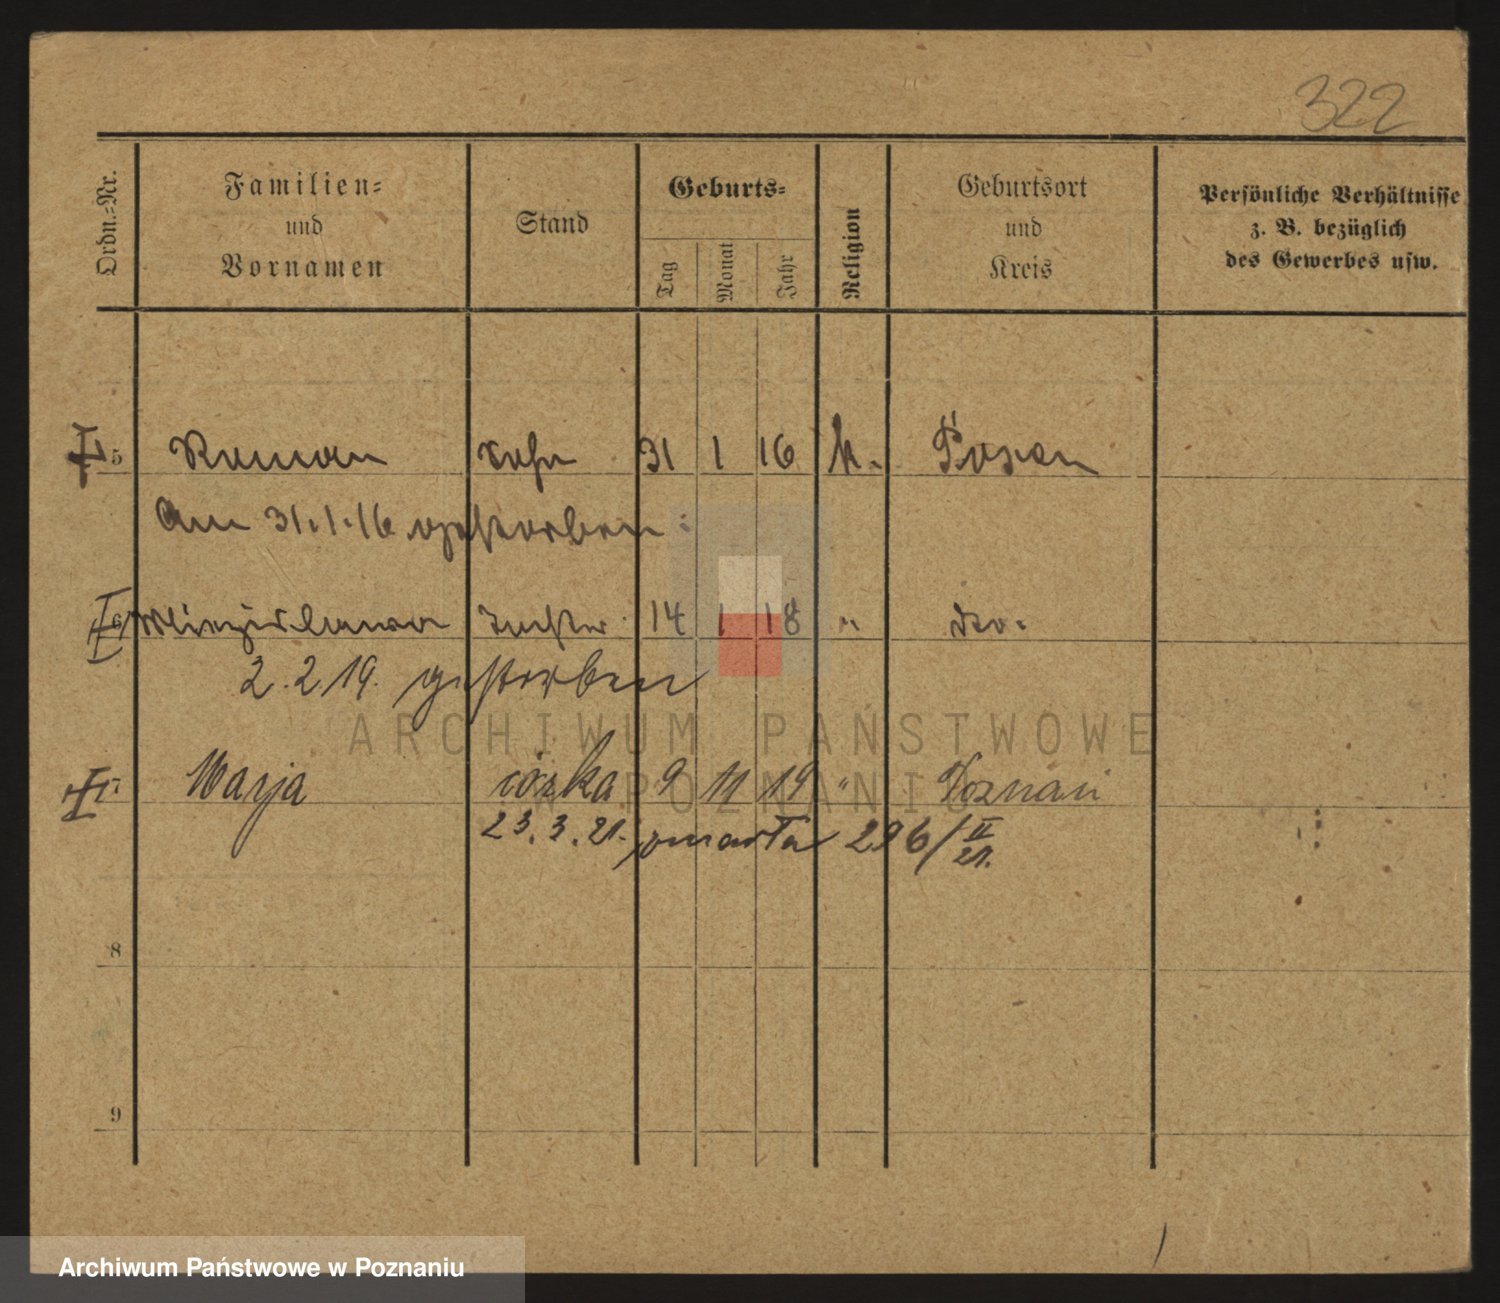 322
Ordn.-Nr.
Familien-
und
Vornamen
Stand
Geburts-
Tag
Monat
Jahr
Religion
Geburtsort
und
Kreis
Persönliche Verhältnisse
z. B. bezüglich
des Gewerbes usw.
5 Roman Sohn 31 1 16 k. Posen
Am 31.1.16 gestorben
6 Tochter 14 1 18 " do.
2.2.19. gestorben
ARCHIWUM PAŃSTWOWE
W POZNANIU
7 Marja córka 9 11 19 " Poznań
23.3.21. zmarła 296/II 21.
8
9
Archiwum Państwowe w Poznaniu